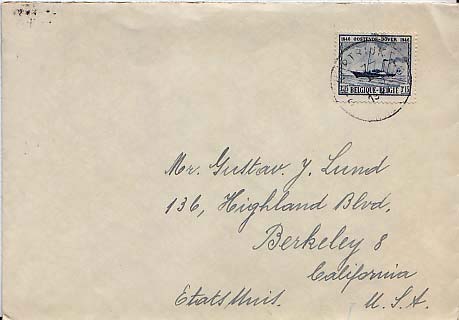 1846 OOSTENDE-DOVER 1946
BELGIQUE-BELGIË
Mr. Gustav. J. Lund
136, Highland Blvd.
Berkeley 8
California
Etats Unis. U.S.A.